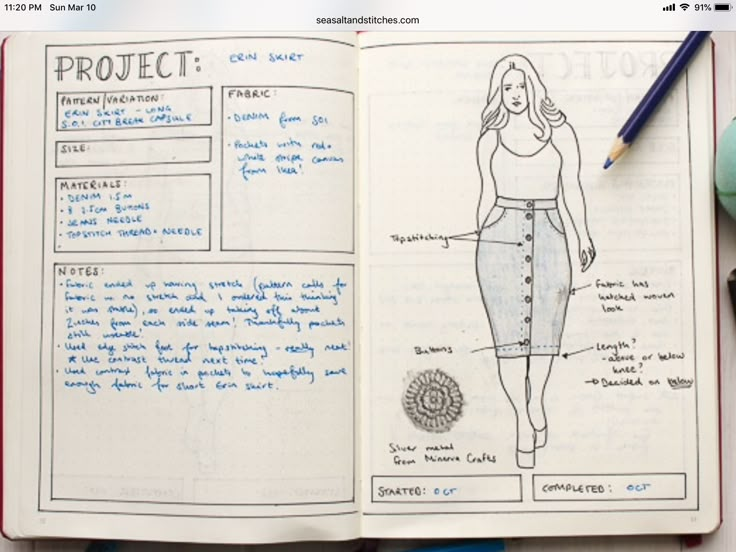 11:20 PM Sun Mar 10
91%
seasaltandstitches.com
PROJECT: ERIN SKIRT
PATTERN/VARIATION:
ERIN SKIRT - LONG
S.O.I. CITY BREAK CAPSULE
SIZE:
MATERIALS:
• DENIM 1.5m
• 8 2.5cm BUTTONS
• JEANS NEEDLE
• TOPSTITCH THREAD + NEEDLE
FABRIC:
• DENIM from SOI
• Pockets with red +
white stripe canvas
from Ikea!
NOTES:
• Fabric ended up having stretch (pattern calls for
fabric w no stretch and I ordered this thinking
it was stable), so ended up taking off about
2 inches from each side seam! Thankfully pockets
still useable!
• Used edge stitch foot for topstitching - really neat!
* Use contrast thread next time!
• Used contrast fabric in pockets to hopefully save
enough fabric for short Erin skirt.
Topstitching
Fabric has
hatched woven
look
Buttons
Length?
- above or below
knee?
→ Decided on below
Silver metal
from Minerva Crafts
STARTED: OCT
COMPLETED: OCT